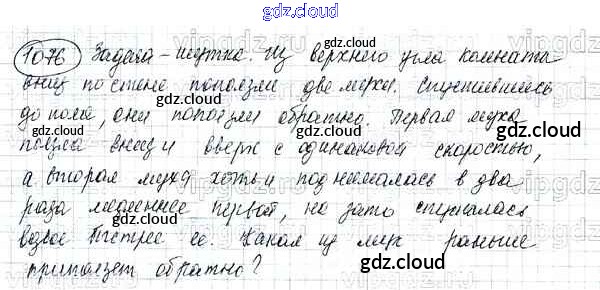 gdz.cloud
1076 Задача-шутка. Из верхнего угла комната
вниз по стене поползли две мухи. Спустившись
до пола, они поползли обратно. Первая муха
ползла вниз и вверх с одинаковой скоростью,
а вторая муха хоть и поднималась в два
раза медленнее первой, но зато спускалась
вдвое быстрее ее. Какая из мух раньше
приползет обратно?
gdz.cloud
gdz.cloud
gdz.cloud
gdz.cloud
gdz.cloud
gdz.cloud
gdz.cloud
gdz.cloud
gdz.cloud